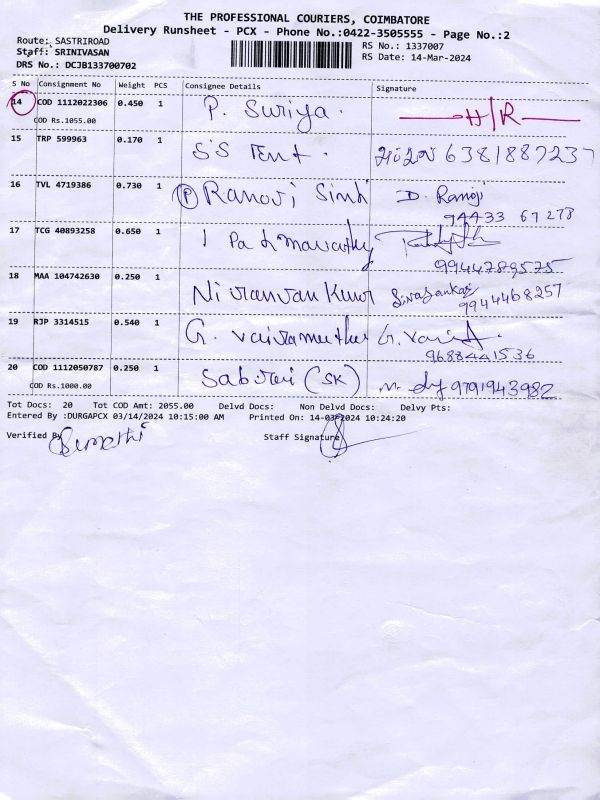 THE PROFESSIONAL COURIERS, COIMBATORE
Delivery Runsheet - PCX - Phone No.:0422-3505555 - Page No.:2
Route: SASTRIROAD
RS No.: 1337007
Staff: SRINIVASAN
RS Date: 14-Mar-2024
DRS No.: DCJB133700702
S No Consignment No Weight PCS Consignee Details Signature
14 COD 1112022306 0.450 1 P. Suriya. H/R
COD Rs.1055.00
15 TRP 599963 0.170 1 S S Tent. 6381887237
16 TVL 4719386 0.730 1 P Ranoji Sinh D. Ranoji
94433 67278
17 TCG 40893258 0.650 1
9944789575
18 MAA 104742630 0.250 1 Sivasankar
9944468257
19 RJP 3314515 0.540 1 G. Vairamuthu
9688441536
20 COD 1112050787 0.250 1 (SK) 9791943982
COD Rs.1000.00
Tot Docs: 20 Tot COD Amt: 2055.00 Delvd Docs: Non Delvd Docs: Delvy Pts:
Entered By :DURGAPCX 03/14/2024 10:15:00 AM Printed On: 14-03-2024 10:24:20
Verified By Staff Signature